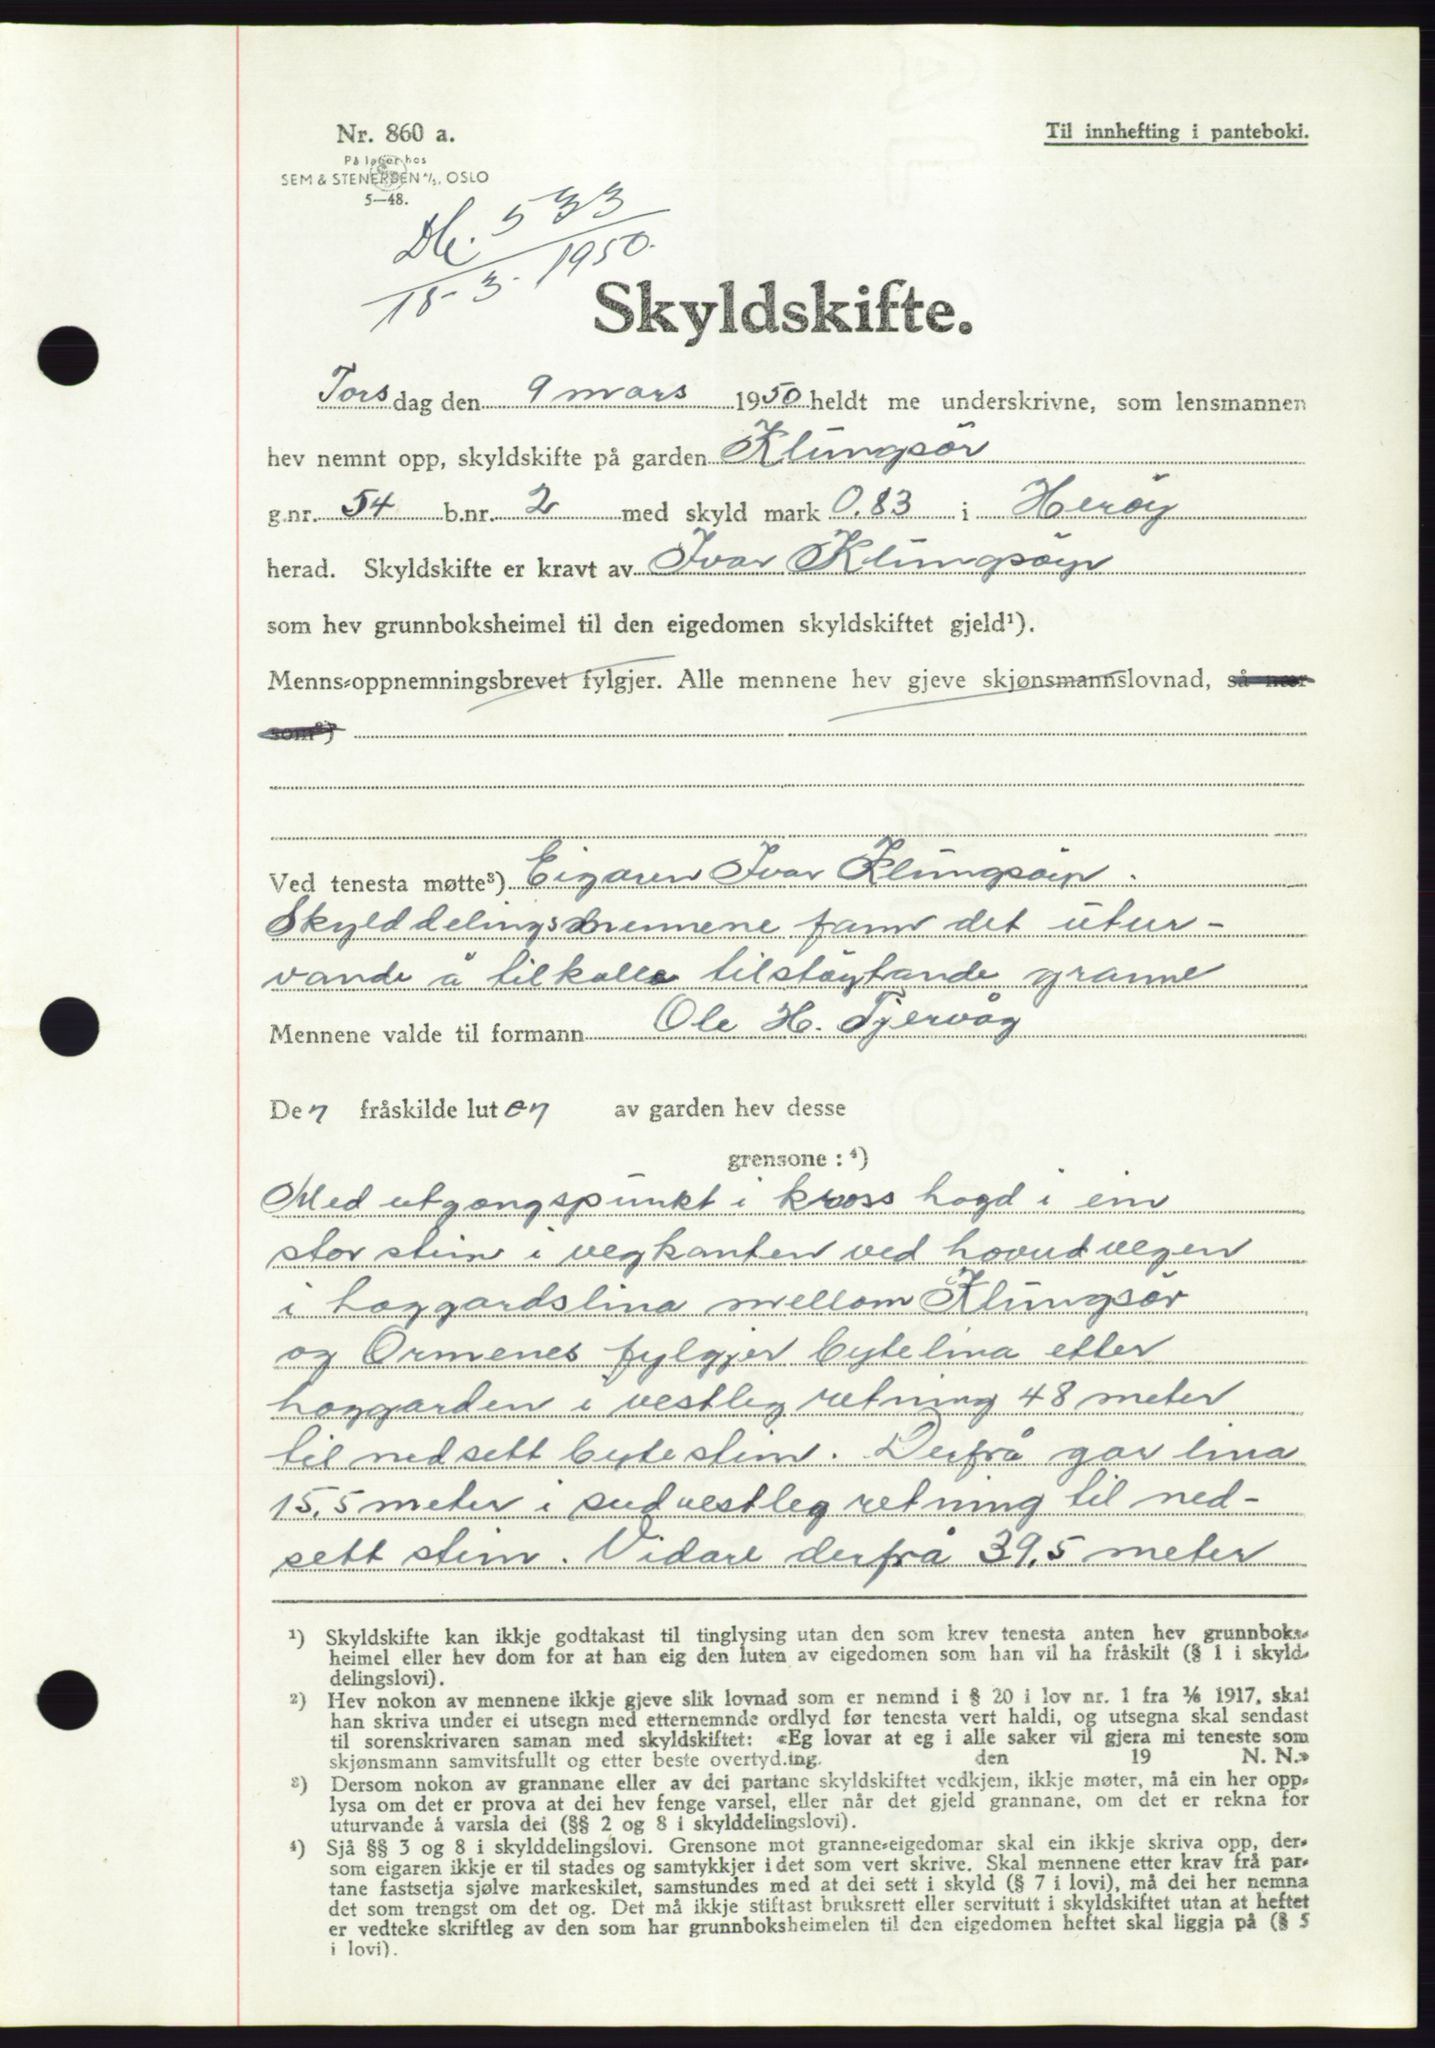 Nr. 860 a.
Til innhefting i panteboki.
På lager hos
SEM & STENERSEN A/S, OSLO
5—48.
Dk. 533
18-3-1950.
Skyldskifte.
Torsdag den 9 mars 1950 heldt me underskrivne, som lensmannen
hev nemnt opp, skyldskifte på garden Klungsör
g.nr. 54 b.nr. 2 med skyld mark 0.83 i Heröy
herad. Skyldskifte er kravt av Ivar Klungsöyr
som hev grunnboksheimel til den eigedomen skyldskiftet gjeld¹).
Menns-oppnemningsbrevet fylgjer. Alle mennene hev gjeve skjønsmannslovnad, så nær
som²)
Ved tenesta møtte³) Eigaren Ivar Klungsöyr.
Skylddelingsmennene fann det utur-
vande å tilkalle tilstöytande granne
Mennene valde til formann Ole H. Tjervåg
Den fråskilde luten av garden hev desse
grensone : ⁴)
Med utgangspunkt i kross hogd i ein
stor stein i vegkanten ved hovudvegen
i haggardslina mellom Klungsör
og Ormenes fylgjer bytelina etter
haggarden i vestleg retning 48 meter
til nedsett bytestein. Derfrå går lina
15,5 meter i sudvestleg retning til ned-
sett stein. Vidare derfrå 39,5 meter
¹) Skyldskifte kan ikkje godtakast til tinglysing utan den som krev tenesta anten hev grunnboks-
heimel eller hev dom for at han eig den luten av eigedomen som han vil ha fråskilt (§ 1 i skyld-
delingslovi).
²) Hev nokon av mennene ikkje gjeve slik lovnad som er nemnd i § 20 i lov nr. 1 fra ⅙ 1917, skal
han skriva under ei utsegn med etternemnde ordlyd før tenesta vert haldi, og utsegna skal sendast
til sorenskrivaren saman med skyldskiftet: «Eg lovar at eg i alle saker vil gjera mi teneste som
skjønsmann samvitsfullt og etter beste overtyding. den 19 N. N.»
³) Dersom nokon av grannane eller av dei partane skyldskiftet vedkjem, ikkje møter, må ein her opp-
lysa om det er prova at dei hev fenge varsel, eller når det gjeld grannane, om det er rekna for
uturvande å varsla dei (§§ 2 og 8 i skylddelingslovi).
⁴) Sjå §§ 3 og 8 i skylddelingslovi. Grensone mot granne-eigedomar skal ein ikkje skriva opp, der-
som eigaren ikkje er til stades og samtykkjer i det som vert skrive. Skal mennene etter krav frå par-
tane fastsetja sjølve markeskilet, samstundes med at dei sett i skyld (§ 7 i lovi), må dei her nemna
det som trengst om det og. Det må ikkje stiftast bruksrett eller servitutt i skyldskiftet utan at heftet
er vedteke skriftleg av den som har grunnboksheimelen til den eigedomen heftet skal liggja på (§ 5
i lovi).